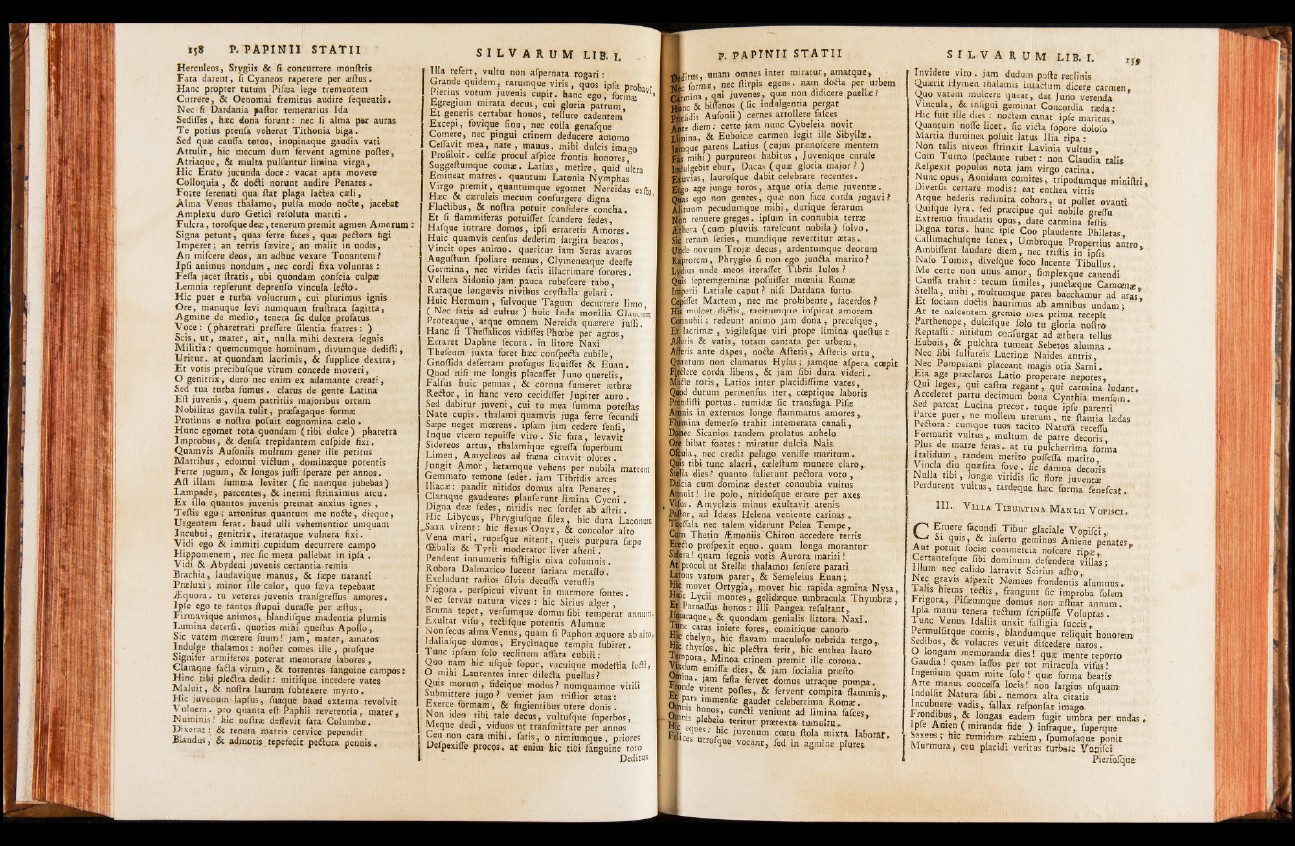 158 P. PAPINII STATII
Herculeos, Stygiis & ſi concurrere monſtris
Fata darent, ſi Cyaneos raperere per æſtus.
Hanc propter tutum Piſæa lege trementem
Currere, & Oenomai fremitus audire ſequentis.
Nec ſi Dardania paſtor temerarius Ida
Sediſſes, hæc dona forent: nec ſi alma per auras
Te potius prenſa veheret Tithonia biga.
Sed quæ cauſſa toros, inopinaque gaudia vati
Attulit, hic mecum dum fervent agmine poſtes,
Atriaque, & multa pulſantur limina virga,
Hic Erato jucunda doce: vacat apta movere
Colloquia, & docti norunt audire Penates.
Forte ſerenati qua ſtat plaga lactea cæli,
Alma Venus thalamo, pulſa modo nocte, jacebat
Amplexu duro Getici reſoluta mariti.
Fulcra, toroſque deæ, tenerum premit agmen Amorum:
Signa petunt, quas ferre faces, quæ pectora figi
Imperet; an terris ſævire, an malit in undis,
An miſcere deos, an adhuc vexare Tonantem?
Ipſi animus nondum, nec cordi fixa voluntas:
Feſſa jacet ſtratis, ubi quondam conſcia culpæ
Lemnia repſerunt deprenſo vincula lecto.
Hic puer e turba volucrum, cui plurimus ignis
Ore, manuque levi numquam fruſtrata ſagitta,
Agmine de medio, tenera ſic dulce profatus
Voce: (pharetrati preſſere ſilentia fratres:)
Scis, ut, mater, ait, nulla mihi dextera ſegnis
Militia: quemcumque hominum, divumque dediſti,
Uritur. at quondam lacrimis, & ſupplice dextra,
Et votis precibuſque virum concede moveri,
O genitrix, duro nec enim ex adamante creati,
Sed tua turba ſumus. clarus de gente Latina
Eſt juvenis, quem patritiis majoribus ortum
Nobilitas gaviſa tulit, præſagaque formæ
Protinus e noſtro poſuit cognomina cælo.
Hunc egomet tota quondam (tibi dulce) pharetra
Improbus, & denſa trepidantem cuſpide fixi.
Quamvis Auſoniis multum gener ille petitus
Matribus, edomui victum, dominæque potentis
Ferre jugum, & longos juſſi ſperare per annos.
Aſt illam ſumma leviter (ſic namque jubebas)
Lampade, parcentes, & inermi ſtrinximus arcu.
Ex illo quantos juvenis premat anxius ignes,
Teſtis ego; attonitus quantum me nocte, dieque,
Urgentem ferat. haud ulli vehementior umquam
Incubui, genitrix, iterataque vulnera fixi.
Vidi ego & immiti cupidum decurrere campo
Hippomenem, nec ſic meta pallebat in ipſa.
Vidi & Abydeni juvenis certantia remis
Brachia, laudavique manus, & ſæpe natanti
Præluxi; minor ille calor, quo ſæva tepebant
Æquora. tu veteres juvenis tranſgreſſus amores.
Ipſe ego te tantos ſtupui duraſſe per æſtus,
Firmavique animos, blandiſque madentia plumis
Lumina deterſi. quoties mihi queſtus Apollo,
Sic vatem mœrere ſuum! jam, mater, amatos
Indulge thalamos: noſter comes ille, piuſque
Signifer armiferos poterat memorare labores,
Claraque facta virum, & torrentes ſanguine campos:
Hinc tibi plectra dedit: mitiſque incedere vates
Maluit, & noſtra laurum ſubtexere myrto.
Hic juvenum lapſus, ſuaque haud externa revolvit
Vulnera. pro quanta eſt Paphii reverentia, mater,
Numinis! hic noſtræ deflevit fata Columbæ.
Dixerat: & tenera matris cervice pependit
Blandus, & admotis tepefecit pectora pennis.
SILVARUM LIB. I.
Illa refert, vultu non aſpernata rogari:
Grande quidem, rarumque viris, quos ipſa probavi,
Pierius votum juvenis cupit. hanc ego, formæ
Egregium mirata decus, cui gloria patrum,
Et generis certabat honos, tellure cadentem
Excepi, fovique ſinu, nec colla genaſque
Comere, nec pingui crinem deducere amomo
Ceſſavit mea, nate, manus. mihi dulcis imago
Proſiluit. celſæ procul aſpice frontis honores,
Suggeſtumque comæ. Latias, metire, quid ultra
Emineat matres. quantum Latonia Nymphas
Virgo premit, quantumque egomet Nereidas exſto.
Hæc & cæruleis mecum conſurgere digna
Fluctibus, & noſtra potuit conſidere concha.
Et ſi flammiferas potuiſſet ſcandere ſedes,
Haſque intrare domos, ipſi erraretis Amores.
Huic quamvis cenſus dederim largita beatos,
Vincit opes animo. queritur jam Seras avaros
Auguſtum ſpoliare nemus, Clymeneaque deeſſe
Germina, nec virides ſatis illacrimare ſorores.
Vellera Sidonio jam pauca rubeſcere tabo,
Raraque longævis nivibus cryſtalla gelari.
Huic Hermum, fulvoque Tagum decurrere limo,
(Nec ſatis ad cultus) huic Inda monilia Glaucum
Proteaque, atque omnem Nereida quærere juſſi.
Hanc ſi Theſſalicos vidiſſes Phœbe per agros,
Erraret Daphne ſecura. in litore Naxi
Theſeum juxta foret hæc conſpecta cubile,
Gnoſſida deſertam profugus liquiſſet & Euan.
Quod niſi me longis placaſſet Juno querelis,
Falſus huic pennas, & cornua ſumeret æthræ
Rector, in hanc vero cecidiſſet Jupiter auro.
Sed dabitur juveni, cui tu mea ſumma poteſtas
Nate cupis. thalami quamvis juga ferre ſecundi
Sæpe neget mœrens. ipſam jam cedere ſenſi,
Inque vicem tepuiſſe viro. Sic fata, levavit
Sidereos artus, thalamique egreſſa ſuperbum
Limen, Amyclæos ad fræna citavit olores.
Jungit Amor, lætamque vehens per nubila matrem
Gemmato temone ſedet. jam Tibridis arces
Iliacæ: pandit nitidos domus alta Penates,
Claraque gaudentes plauſerunt limina Cycni.
Digna deæ ſedes, nitidis nec ſordet ab aſtris.
Hic Libycus, Phrygiuſque ſilex, hic dura Laconum
Saxa virent: hic flexus Onyx, & concolor alto
Vena mari, rupeſque nitent, queis purpura ſæpe
Œbalis & Tyrii moderator liver aheni.
Pendent innumeris faſtigia nixa columnis.
Robora Dalmatico lucent ſatiata metallo.
Excludunt radios ſilvis decuſſa vetuſtis
Frigora. perſpicui vivunt in marmore fontes.
Nec ſervat natura vices: hic Sirius alget,
Bruma tepet, verſumque domus ſibi temperat annum.
Exultat viſu, tectiſque potentis Alumnæ
Non ſecus alma Venus, quam ſi Paphon æquore ab alto,
Idaliaſque domos, Erycinaque templa ſubiret.
Tunc ipſam ſolo reclinem affata cubili:
Quo nam hic uſque ſopor, vacuique modeſtia lecti,
O mihi Laurentes inter dilecta puellas?
Quis morum, fideique modus? numquamne virili
Submittere jugo? veniet jam triſtior ætas:
Exerce formam, & fugientibus utere donis.
Non ideo tibi tale decus, vultuſque ſuperbos,
Meque dedi, viduos ut tranſmittere per annos
Ceu non cara mihi. ſatis, o nimiumque, priores
Deſpexiſſe procos. at enim hic tibi ſanguine toto
Deditus
P. PAPINII STATII
Deditus, unam omnes inter miratur, amatque,
Nec formæ, nec ſtirpis egens. nam docta per urbem
Carmina, qui juvenes, quæ non didicere puellæ?
Hunc & biſſenos (ſic indulgentia pergat
Præſidis Auſonii) cernes attollere faſces
Ante diem: certe jam nunc Cybeleia novit
Limina, & Euboicæ carmen legit ille Sibyllæ.
Jamque parens Latius (cujus prænoſcere mentem
Fas mihi) purpureos habitus, Juvenique curule
Indulgebit ebur, Dacas (quæ gloria major?)
Exuvias, lauroſque dabit celebrare recentes.
Ergo age junge toros, atque otia deme juventæ.
Quas ego non gentes, quæ non face corda jugavi?
Alituum pecudumque mihi, durique ferarum
Non renuere greges. ipſum in connubia terræ
Æthera (cum pluviis rareſcunt nubila) ſolvo.
Sic rerum ſeries, mundique revertitur ætas.
Unde novum Trojæ decus, ardentumque deorum
Raptorem, Phrygio ſi non ego juncta marito?
Lydius unde meos iteraſſet Tibris Iulos?
Quis ſeptemgeminæ poſuiſſet mœnia Romæ
Imperii Latiale caput? niſi Dardana furto
Cepiſſet Martem, nec me prohibente, ſacerdos?
His mulcet dictis, tacitumque inſpirat amorem
Connubii; redeunt animo jam dona, preceſque,
Et lacrimæ, vigileſque viri prope limina queſtus:
Aſteris & vatis, totam cantata per urbem,
Aſteris ante dapes, nocte Aſteris, Aſteris ortu,
Quantum non clamatus Hylas; jamque aſpera cœpit
Flectere corda libens, & jam ſibi dura videri.
Macte toris, Latios inter placidiſſime vates,
Quod durum permenſus iter, cœptique laboris
Prendiſti portus. tumidæ ſic tranſfuga Piſæ
Amnis in externos longe flammatus amores,
Flumina demerſo trahit intemerata canali,
Donec Sicanios tandem prolatus anhelo
Ore bibat fontes: miratur dulcia Nais
Oſcula, nec credit pelago veniſſe maritum.
Quis tibi tunc alacri, cæleſtum munere claro,
Stella dies? quanto ſalierunt pectora voto,
Dulcia cum dominæ dexter connubia vultus
Annuit! ire polo, nitidoſque errare per axes
Viſus. Amyclæis minus exultavit arenis
Paſtor, ad Idæas Helena veniente carinas.
Theſſala nec talem viderunt Pelea Tempe,
Cum Thetin Æmoniis Chiron accedere terris
Erecto proſpexit equo. quam longa morantur
Sidera! quam ſegnis votis Aurora mariti!
At procul ut Stellæ thalamos ſenſere parati
Latous vatum pater, & Semeleius Euan;
Hic movet Ortygia, movet hic rapida agmina Nysa,
Huic Lycii montes, gelidæque umbracula Thymbræ,
Et Parnaſſus honos: illi Pangea reſultant,
Iſmaraque, & quondam genialis littora Naxi.
Tunc caras iniere fores, comitique canoro
Hic chelyn, hic flavam maculoſo nebrida tergo,
Hic thyrſos, hic plectra ferit, hic enthea lauro
Tempora, Minoa crinem premit ille corona.
Vixdum emiſſa dies, & jam ſocialia præſto
Omina. jam feſta fervet domus utraque pompa.
Fronde virent poſtes, & fervent compita flammis,
Et pars immenſæ gaudet celeberrima Romæ.
Omnis honos, cuncti veniunt ad limina faſces,
Omnis plebeio teritur prætexta tumultu.
Hic eques; hic juvenum cœtu ſtola mixta laborat.
Felices utroſque vocant, ſed in agmine plures
SILVARUM LIB. I. 159
Invidere viro. jam dudum poſte reclinis
Quærit Hymen thalamis intactum dicere carmen,
Quo vatem mulcere queat, dat Juno verenda
Vincula, & inſigni geminat Concordia tæda:
Hic fuit ille dies: noctem canat ipſe maritus,
Quantum noſſe licet. ſic victa ſopore doloſo
Martia fluminea poſuit latus Ilia ripa:
Non talis niveos ſtrinxit Lavinia vultus,
Cum Turno ſpectante rubet: non Claudia talis
Reſpexit populos nota jam virgo carina.
Nunc opus, Aonidum comites, tripodumque miniſtri,
Diverſis certare modis: eat enthea vittis
Atque hederis redimita cohors, ut pollet ovanti
Quiſque lyra. ſed præcipue qui nobile greſſu
Extremo fraudatis opus, date carmina feſtis
Digna toris. hunc ipſe Coo plaudente Philetas,
Callimachuſque ſenex, Umbroque Propertius antro,
Ambiſſent laudare diem, nec triſtis in ipſis
Naſo Tomis, diveſque foco lucente Tibullus.
Me certe non unus amor, ſimplexque canendi
Cauſſa trahit: tecum ſimiles, junctæque Camœnæ,
Stella, mihi, multumque pares bacchamur ad aras,
Et ſociam doctis haurimus ab amnibus undam;
At te naſcentem gremio mea prima recepit
Parthenope, dulciſque ſolo tu gloria noſtro
Reptaſti: nitidum conſurgat ad æthera tellus
Eubois, & pulchra tumeat Sebetos alumna.
Nec ſibi ſulfureis Lucrinæ Naides antris,
Nec Pompeiani placeant magis otia Sarni.
Eia age præclaros Latio properate nepotes,
Qui leges, qui caſtra regant, qui carmina ludant.
Acceleret partu decimum bona Cynthia menſem.
Sed parcat Lucina precor. tuque ipſe parenti
Parce puer, ne mollem uterum, ne ſtantia lædas
Pectora: cumque tuos tacito Natura receſſu
Formarit vultus, multum de patre decoris,
Plus de matre feras. at tu pulcherrima forma
Italidum, tandem merito poſſeſſa marito,
Vincla diu quæſita fove. ſic damna decoris
Nulla tibi, longæ viridis ſic flore juventæ
Perdurent vultus, tardeque hæc forma ſeneſcat.
III. VILLA TIBURTINA MANLII VOPISCI.
CErnere facundi Tibur glaciale Vopiſci,
Si quis, & inſerto geminos Aniene penates,
Aut potuit ſociæ commercia noſcere ripæ,
Certanteſque ſibi dominum defendere villas;
Illum nec calido latravit Seirius aſtro,
Nec gravis aſpexit Nemees frondentis alumnus.
Talis hiems tectis, frangunt ſic improba ſolem
Frigora, Piſæumque domus non æſtuat annum.
Ipſa manu tenera tectum ſcripſiſſe Voluptas.
Tunc Venus Idaliis unxit faſtigia ſuccis,
Permulſitque comis, blandumque reliquit honorem
Sedibus, & volucres vetuit diſcedere natos.
O longum memoranda dies! quæ mente reporto
Gaudia! quam laſſos per tot miracula viſus!
Ingenium quam mite ſolo! quæ forma beatis
Arte manus conceſſa locis! non largius uſquam
Indulſit Natura ſibi. nemora alta citatis
Incubuere vadis, fallax reſponſat imago
Frondibus, & longas eadem fugit umbra per undas.
Ipſe Anien (miranda fide) infraque, ſuperque
Saxeus; hic tumidam rabiem, ſpumoſaque ponit
Murmura, ceu placidi veritus turbare Vopiſci
Pierioſque